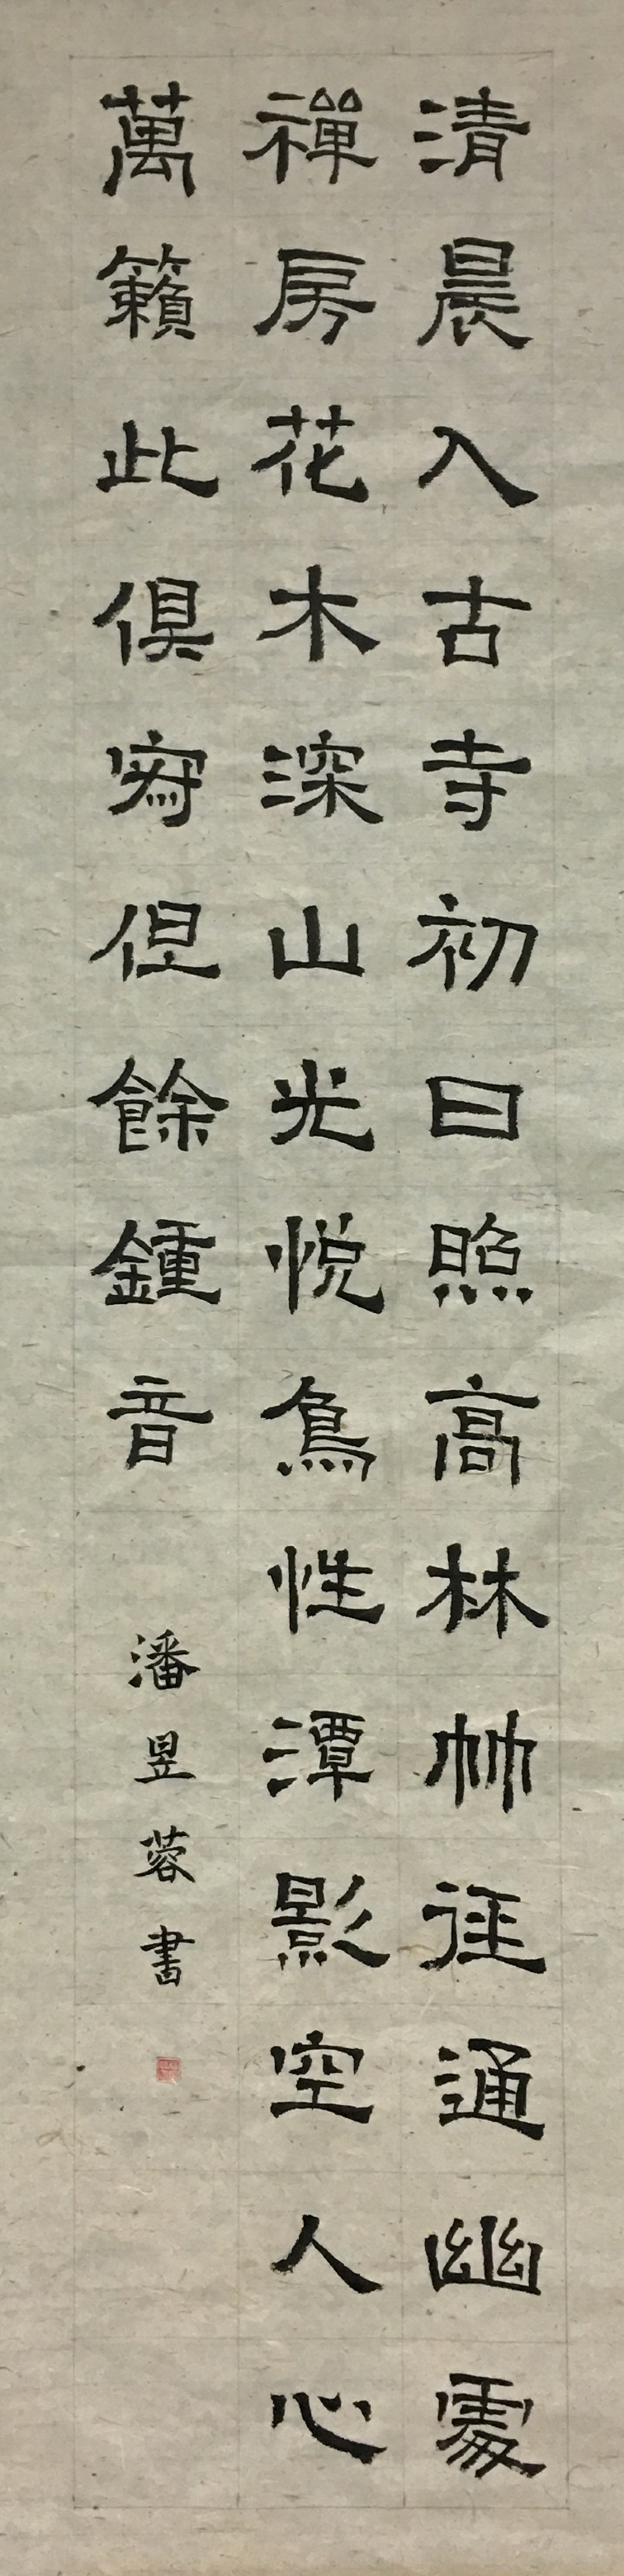 清晨入古寺初日照高林竹徑通幽處
禪房花木深山光悅鳥性潭影空人心
萬籟此俱寂但餘鍾音
潘昱蓉書